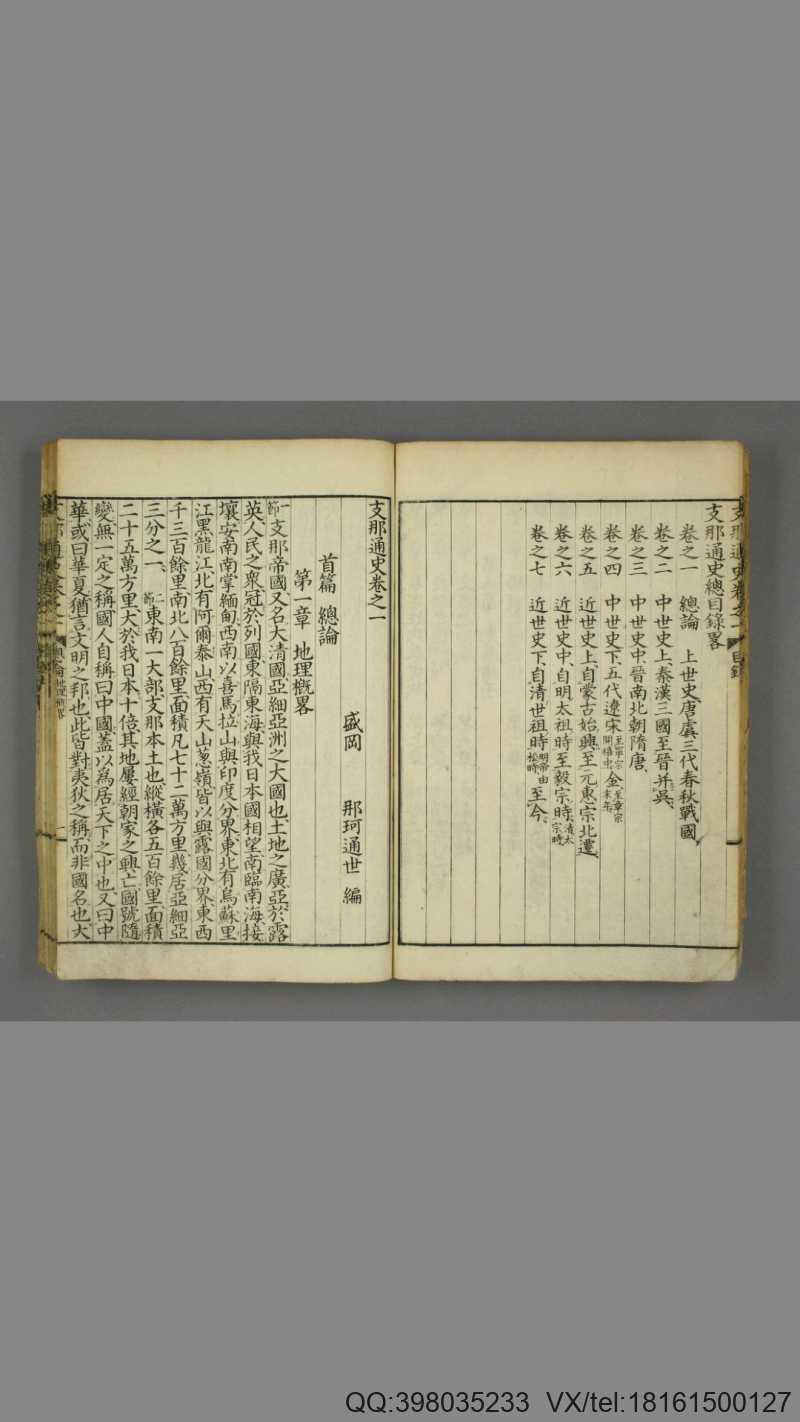 支那通史總目錄畧
卷之一 總論 上世史唐虞三代春秋戰國
卷之二 中世史上秦漢三國至晉并吳
卷之三 中世史中晉南北朝隋唐
卷之四 中世史下五代遼宋至寧宗開禧中金至章宗末年
卷之五 近世史上自蒙古始興至元惠宗北遷
卷之六 近世史中自明太祖時至毅宗時清太宗時
卷之七 近世史下自清世祖時明帝由崧時至今
支那通史卷之一
盛岡 那珂通世 編
首篇 總論
第一章 地理概畧
一節支那帝國又名大清國亞細亞洲之大國也土地之廣亞於露
英人民之衆冠於列國東隔東海與我日本國相望南臨南海接
壤安南南掌緬甸西南以喜馬拉山與印度分界東北有烏蘇里
江黑龍江北有阿爾泰山西有天山葱嶺皆以與露國分界東西
千三百餘里南北八百餘里面積凡七十二萬方里幾居亞細亞
三分之一二節東南一大部支那本土也縱橫各五百餘里面積
二十五萬方里大於我日本十倍其地屢經朝家之興亡國號隨
變無一定之稱國人自稱曰中國蓋以爲居天下之中也又曰中
華或曰華夏猶言文明之邦也此皆對夷狄之稱而非國名也大
QQ:398035233 VX/tel:18161500127